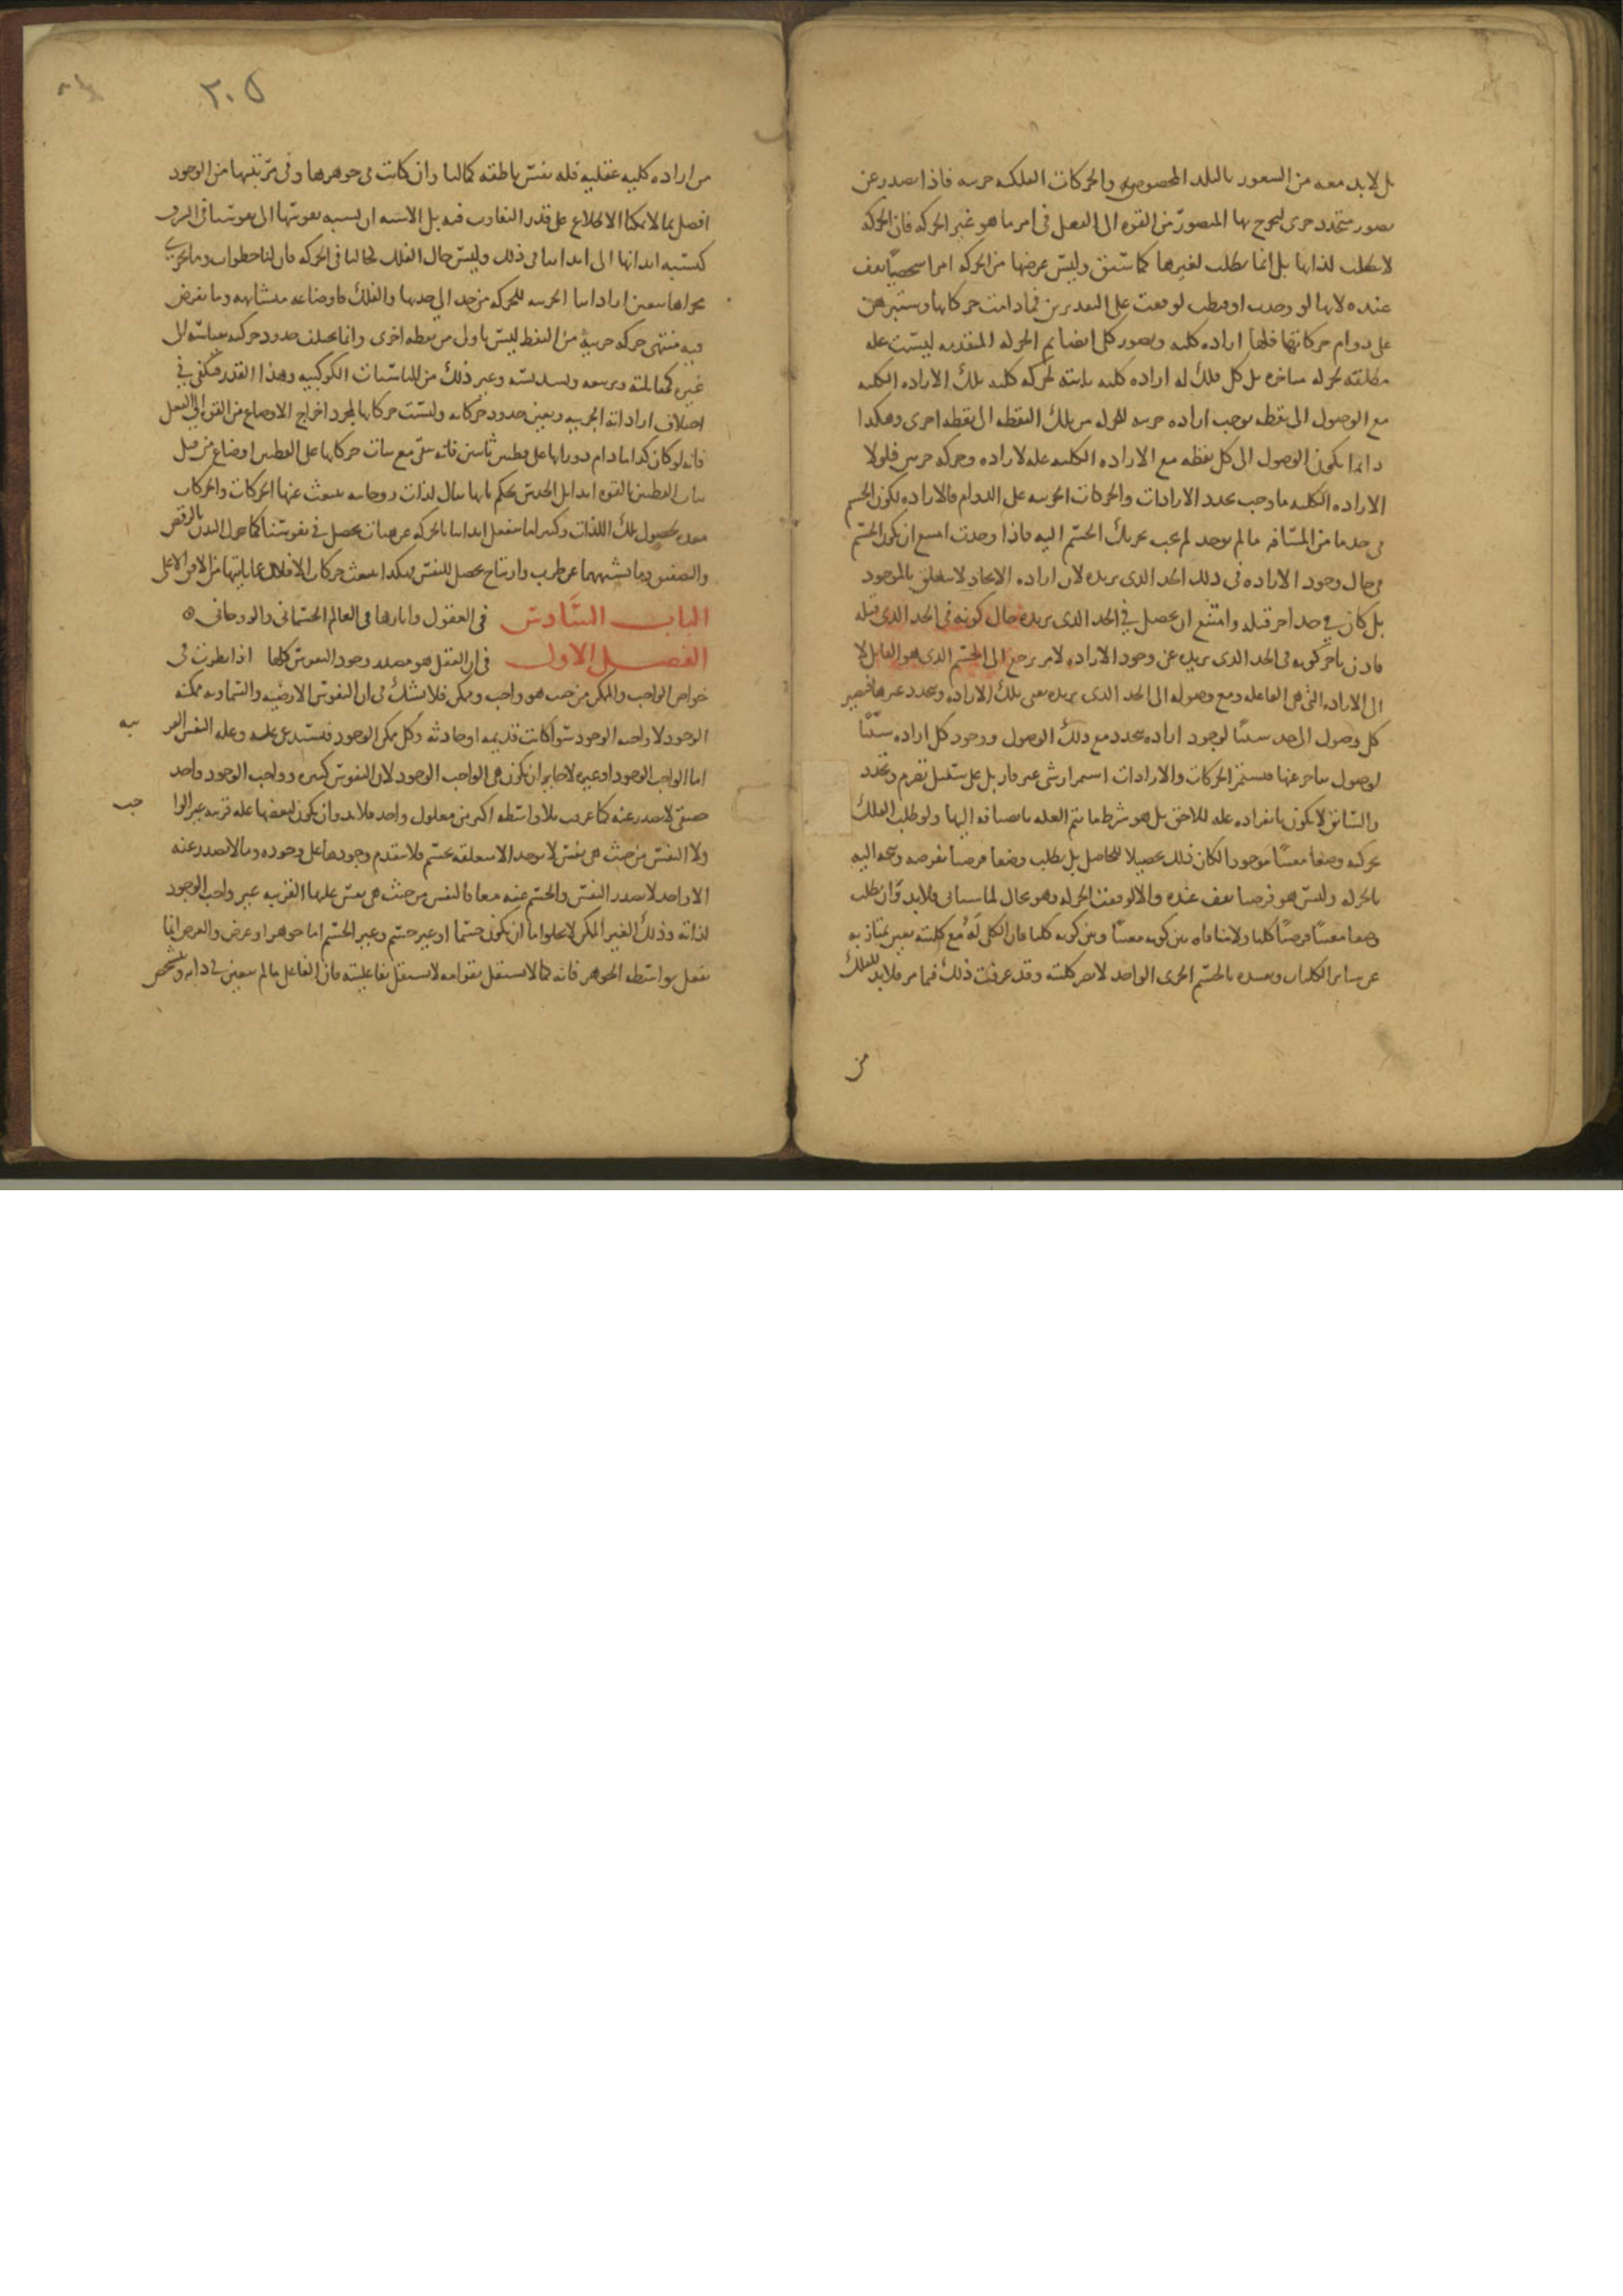 بل لابد معه من الشعور بالبلد المخصوص والحركات الفلكيه جزييه فاذا تصدر عن
تصور متجدد جزى ليخرج بها المتصور من القوه الى الفعل فى امر ما هو غير الحركه فان الحركه
لا تطلب لذاتها بل انما تطلب لغيرها كما سبق وليس غرضها من الحركه امرا شخصيا يقف
عنده لانها لو وجدت او قنطت لوقفت على التقديرين فما دامت حركاتها وستبرهن
على دوام حركاتها فلها اراده كليه وتصور كلى
مع الوصول الى نقطه يوجب اراده جزييه لحركه من تلك النقطه الى نقطه اخرى وهكذا
دايما يكون الوصول الى كل نقطه مع الاراده الكليه عله لاراده وحركه جزيتين فلولا
الاراده الكليه ما وجب تجدد الارادات والحركات الجزييه على الدوام فالاراده لكون الجسم
فى حد ما من المسافه ما لم توجد لم يجب تحريك الجسم اليه فاذا وجدت امتنع ان يكون الجسم
فى حال وجود الاراده فى ذلك الحد الذى يريده لان اراده الايجاد لا تتعلق بالموجود
بل كان فى حد اخر قبله وامتنع ان يحصل فى الحد الذى يريده حال كونه فى الحد الذى قبله
فاذن تاخر كونه فى الحد الذى يريده عن وجود الاراده لامر يرجع الى الجسم الذى هو القابل لا
الى الاراده التى هى الفاعله ومع وصوله الى الحد الذى يريده تفنى تلك الاراده ويتجدد غيرها فيصير
كل وصول الى حد سببا لوجود اراده تتجدد مع ذلك الوصول ووجود كل اراده سببا
لوصول يتاخر عنها فتستمر الحركات والارادات استمرار شى غير قار بل على سبيل تصرم وتجدد
والسابق لا يكون بانفراده عله للاحق بل هو شرط ما تتم العله بانضيافه اليها ولو طلب الفلك
بحركته وضعا معينا موجودا لكان ذلك تحصيلا للحاصل بل يطلب وضعا فرضيا يفرضه ويتجه اليه
بالحركه وليس هو فرضيا يقف عنده والا لوقفت الحركه وهو محال لما سياتى فلابد وان يطلب
وضعا معينا فرضيا كليا ولا منافاه بين كونه معينا وبين كونه كليا فان الكلى له مع كليته تعين يمتاز به
عن ساير الكليات وتقييده بالجسم الجزى الواحد لا يضر كليته وقد عرفت ذلك فيما مر فلابد للفلك
من
٢٠٥
من اراده كليه عقليه فله نفس ناطقه كما لنا وان كانت فى جوهرها وفى مرتبتها من الوجود
افضل بما لا يمكننا الاطلاع على قدر التفاوت فيه بل الاشبه ان نسبه نفوسها الى نفوسنا فى الشرف
كنسبه ابدانها الى ابداننا فى ذلك وليس حال الفلك كحالنا فى الحركه فان لنا خطوات وما يجرى
مجراها تتعين اراداتنا الجزييه للحركه من حد الى حد بها والفلك فاوضاعه متشابهه وما يفرض
فيه منتهى حركه جزييه من النقط ليس باولى من نقطه اخرى وانما يختلف حدود حركته بمناسبه الى
غيره كمقابلته وتربيعه وتسديسه وغير ذلك من المناسبات الكوكبيه وهذا القدر يكفى فى
اختلاف اراداته الجزييه وتعين حدود حركاته وليست حركاتها لمجرد اخراج الاوضاع من القوه الى الفعل
فانه لو كان كذا ما دام دورانها على قطبين ثابتين فانه يبقى مع ثبات حركاتها على القطبين اوضاع من قبل
ثبات القطبين بالقوه ابدا بل الحدس يحكم بانها تنال لذات روحانيه ينبعث عنها الحركات والحركات
معده لحصول تلك اللذات وكثيرا ما تنفعل ابداننا بالحركه عن هيات تحصل فى نفوسنا كما تحرك البدن بالرقص
والتصفيق وما يشبههما عن طرب وارتياح يحصل للنفس فهكذا تنبعث حركات الافلاك عما ياتيها من الافق الاعلى
الباب السادس فى العقول واثارها فى العالم الجسمانى والروحانى ه
الفصل الاول فى ان العقل هو مصدر وجود النفوس كلها اذا نظرت فى
خواص الواجب والممكن من حيث هو واجب وممكن فلا تشك فى ان النفوس الارضيه والسماويه ممكنه
الوجود لا واجبه الوجود سوا كانت قديمه او حادثه وكل ممكن الوجود فيستدعى عله وعله النفس القر
يبه
اما الواجب الوجود او غيره لا جايز ان يكون هى الواجب الوجود لان النفوس كثيره وواجب الوجود واحد
حقيقى لا يصدر عنه كما عرفت بلا واسطه اكثر من معلول واحد فلابد وان يكون لبعضها عله قريبه غير الوا
جب
ولان النفس من حيث هى نفس لا توجد الا متعلقه بجسم فلا يتقدم وجودها على وجوده وما لا يصدر عنه
الا واحد لا يصدر النفس والجسم عنه معا فالنفس من حيث هى نفس علتها القريبه غير واجب الوجود
لذاته وذلك الغير الممكن لا يخلوا اما ان يكون جسما او غير جسم وغير الجسم اما جوهر او عرض والعرض انما
يفعل بواسطه الجوهر فانه كما لا يستقل بقوامه لا يستقل بفاعليته فان الفاعل ما لم يتعين فى ذاته ويتشخص